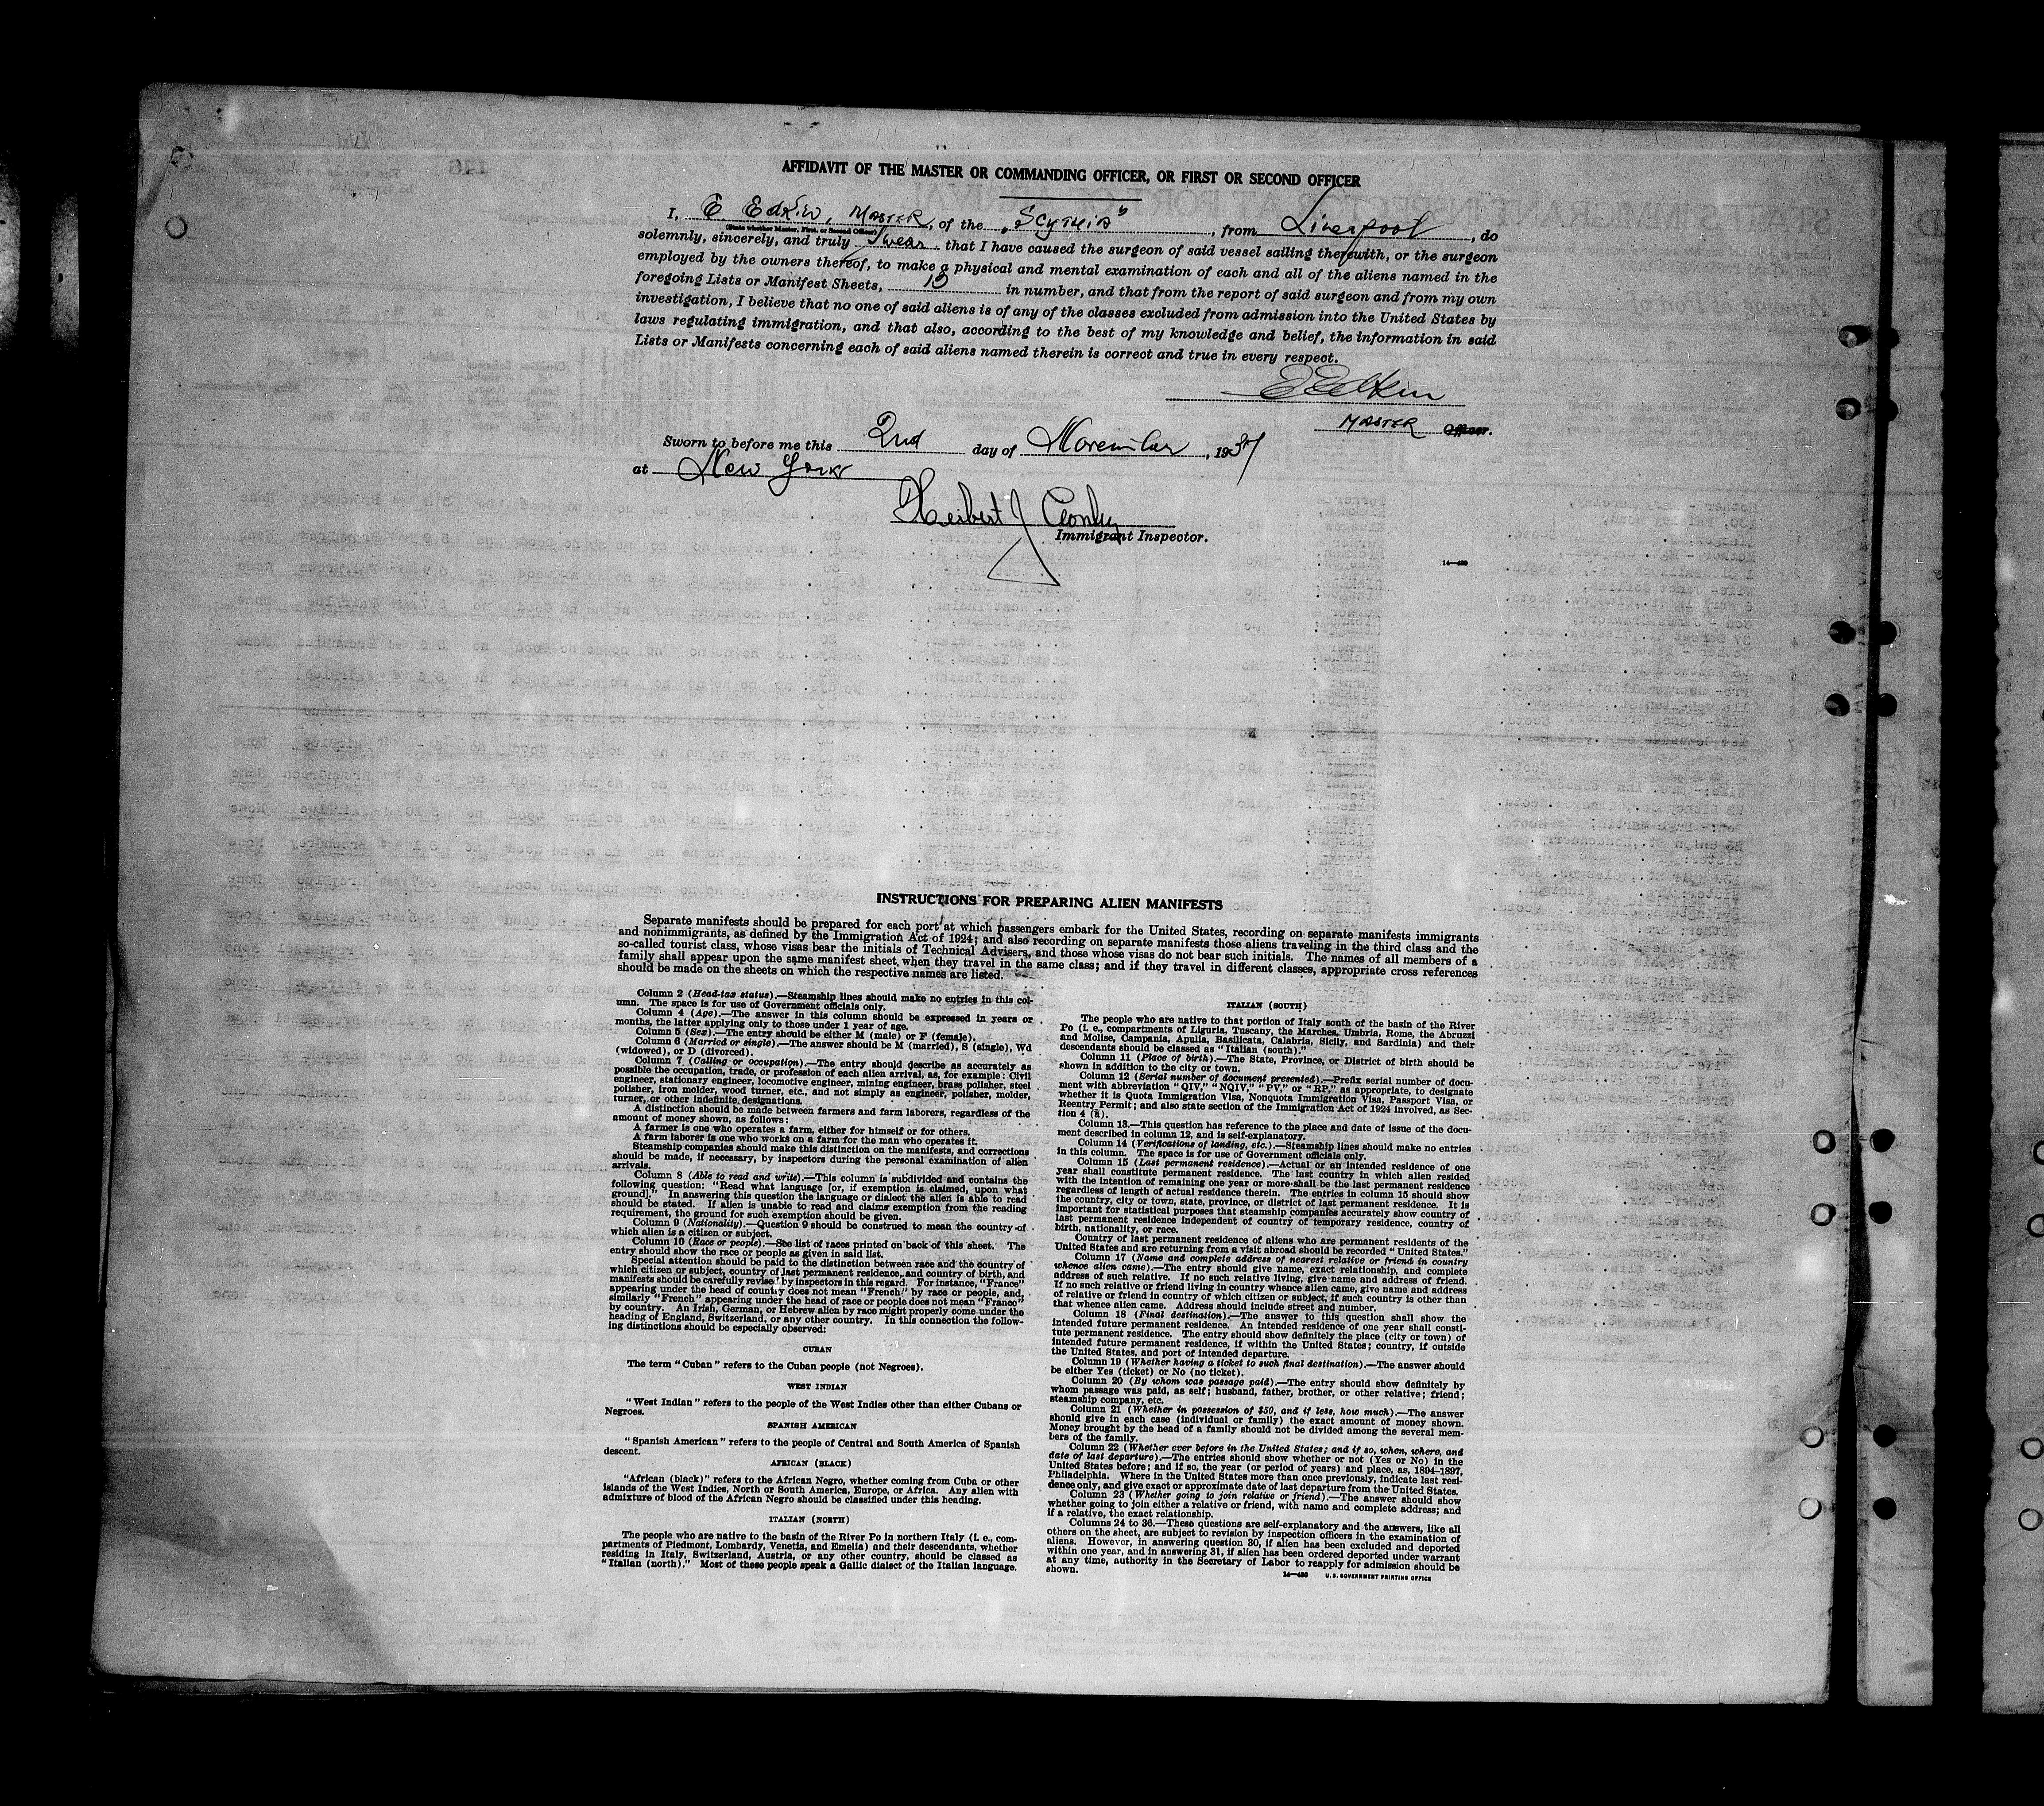 AFFIDAVIT OF THE MASTER OR COMMANDING OFFICER, OR FIRST OR SECOND OFFICER
I, E Edkin, MASTER, of the "SCYTHIA", from Liverpool, do
(State whether Master, First, or Second Officer)
solemnly, sincerely, and truly swear that I have caused the surgeon of said vessel sailing therewith, or the surgeon
employed by the owners thereof, to make a physical and mental examination of each and all of the aliens named in the
foregoing Lists or Manifest Sheets, in number, and that from the report of said surgeon and from my own
investigation, I believe that no one of said aliens is of any of the classes excluded from admission into the United States by
laws regulating immigration, and that also, according to the best of my knowledge and belief, the information in said
Lists or Manifests concerning each of said aliens named therein is correct and true in every respect.
E Edkin
MASTER Officer.
Sworn to before me this 2nd day of November, 1937
at New York
Herbert J
Immigrant Inspector.
14—430
INSTRUCTIONS FOR PREPARING ALIEN MANIFESTS
Separate manifests should be prepared for each port at which passengers embark for the United States, recording on separate manifests immigrants
and nonimmigrants, as defined by the Immigration Act of 1924; and also recording on separate manifests those aliens traveling in the third class and the
so-called tourist class, whose visas bear the initials of Technical Advisers, and those whose visas do not bear such initials. The names of all members of a
family shall appear upon the same manifest sheet when they travel in the same class; and if they travel in different classes, appropriate cross references
should be made on the sheets on which the respective names are listed.
Column 2 (Head-tax status).—Steamship lines should make no entries in this col-
umn. The space is for use of Government officials only.
Column 4 (Age).—The answer in this column should be expressed in years or
months, the latter applying only to those under 1 year of age.
Column 5 (Sex).—The entry should be either M (male) or F (female).
Column 6 (Married or single).—The answer should be M (married), S (single), Wd
(widowed), or D (divorced).
Column 7 (Calling or occupation).—The entry should describe as accurately as
possible the occupation, trade, or profession of each alien arrival, as, for example: Civil
engineer, stationary engineer, locomotive engineer, mining engineer, brass polisher, steel
polisher, iron molder, wood turner, etc., and not simply as engineer, polisher, molder,
turner, or other indefinite designations.
A distinction should be made between farmers and farm laborers, regardless of the
amount of money shown, as follows:
A farmer is one who operates a farm, either for himself or for others.
A farm laborer is one who works on a farm for the man who operates it.
Steamship companies should make this distinction on the manifests, and corrections
should be made, if necessary, by inspectors during the personal examination of alien
arrivals.
Column 8 (Able to read and write).—This column is subdivided and contains the
following question: "Read what language [or, if exemption is claimed, upon what
ground]." In answering this question the language or dialect the alien is able to read
should be stated. If alien is unable to read and claims exemption from the reading
requirement, the ground for such exemption should be given.
Column 9 (Nationality).—Question 9 should be construed to mean the country of
which alien is a citizen or subject.
Column 10 (Race or people).—See list of races printed on back of this sheet. The
entry should show the race or people as given in said list.
Special attention should be paid to the distinction between race and the country of
which citizen or subject, country of last permanent residence, and country of birth, and
manifests should be carefully revised by inspectors in this regard. For instance, "France"
appearing under the head of country does not mean "French" by race or people, and,
similarly "French" appearing under the head of race or people does not mean "France"
by country. An Irish, German, or Hebrew alien by race might properly come under the
heading of England, Switzerland, or any other country. In this connection the follow-
ing distinctions should be especially observed:
CUBAN
The term "Cuban" refers to the Cuban people (not Negroes).
WEST INDIAN
"West Indian" refers to the people of the West Indies other than either Cubans or
Negroes.
SPANISH AMERICAN
"Spanish American" refers to the people of Central and South America of Spanish
descent.
AFRICAN (BLACK)
"African (black)" refers to the African Negro, whether coming from Cuba or other
islands of the West Indies, North or South America, Europe, or Africa. Any alien with
admixture of blood of the African Negro should be classified under this heading.
ITALIAN (NORTH)
The people who are native to the basin of the River Po in northern Italy (i. e., com-
partments of Piedmont, Lombardy, Venetia, and Emelia) and their descendants, whether
residing in Italy, Switzerland, Austria, or any other country, should be classed as
"Italian (north)." Most of these people speak a Gallic dialect of the Italian language.
ITALIAN (SOUTH)
The people who are native to that portion of Italy south of the basin of the River
Po (i. e., compartments of Liguria, Tuscany, the Marches, Umbria, Rome, the Abruzzi
and Molise, Campania, Apulia, Basilicata, Calabria, Sicily, and Sardinia) and their
descendants should be classed as "Italian (south)."
Column 11 (Place of birth).—The State, Province, or District of birth should be
shown in addition to the city or town.
Column 12 (Serial number of document presented).—Prefix serial number of docu-
ment with abbreviation "QIV," "NQIV," "PV," or "RP," as appropriate, to designate
whether it is Quota Immigration Visa, Nonquota Immigration Visa, Passport Visa, or
Reentry Permit; and also state section of the Immigration Act of 1924 involved, as Sec-
tion 4 (a).
Column 13.—This question has reference to the place and date of issue of the docu-
ment described in column 12, and is self-explanatory.
Column 14 (Verifications of landing, etc.).—Steamship lines should make no entries
in this column. The space is for use of Government officials only.
Column 15 (Last permanent residence).—Actual or an intended residence of one
year shall constitute permanent residence. The last country in which alien resided
with the intention of remaining one year or more shall be the last permanent residence
regardless of length of actual residence therein. The entries in column 15 should show
the country, city or town, state, province, or district of last permanent residence. It is
important for statistical purposes that steamship companies accurately show country of
last permanent residence independent of country of temporary residence, country of
birth, nationality, or race.
Country of last permanent residence of aliens who are permanent residents of the
United States and are returning from a visit abroad should be recorded "United States."
Column 17 (Name and complete address of nearest relative or friend in country
whence alien came).—The entry should give name, exact relationship, and complete
address of such relative. If no such relative living, give name and address of friend.
If no such relative or friend living in country whence alien came, give name and address
of relative or friend in country of which citizen or subject, if such country is other than
that whence alien came. Address should include street and number.
Column 18 (Final destination).—The answer to this question shall show the
intended future permanent residence. An intended residence of one year shall consti-
tute permanent residence. The entry should show definitely the place (city or town) of
intended future permanent residence, if within the United States; country, if outside
the United States, and port of intended departure.
Column 19 (Whether having a ticket to such final destination).—The answer should
be either Yes (ticket) or No (no ticket).
Column 20 (By whom was passage paid).—The entry should show definitely by
whom passage was paid, as self; husband, father, brother, or other relative; friend;
steamship company, etc.
Column 21 (Whether in possession of $50, and if less, how much).—The answer
should give in each case (individual or family) the exact amount of money shown.
Money brought by the head of a family should not be divided among the several mem-
bers of the family.
Column 22 (Whether ever before in the United States; and if so, when, where, and
date of last departure).—The entries should show whether or not (Yes or No) in the
United States before; and if so, the year (or period of years) and place, as, 1894–1897,
Philadelphia. Where in the United States more than once previously, indicate last resi-
dence only, and give exact or approximate date of last departure from the United States.
Column 23 (Whether going to join relative or friend).—The answer should show
whether going to join either a relative or friend, with name and complete address; and
if a relative, the exact relationship.
Columns 24 to 36.—These questions are self-explanatory and the answers, like all
others on the sheet, are subject to revision by inspection officers in the examination of
aliens. However, in answering question 30, if alien has been excluded and deported
within one year, and in answering 31, if alien has been ordered deported under warrant
at any time, authority in the Secretary of Labor to reapply for admission should be
shown.
14—430 U.S. GOVERNMENT PRINTING OFFICE